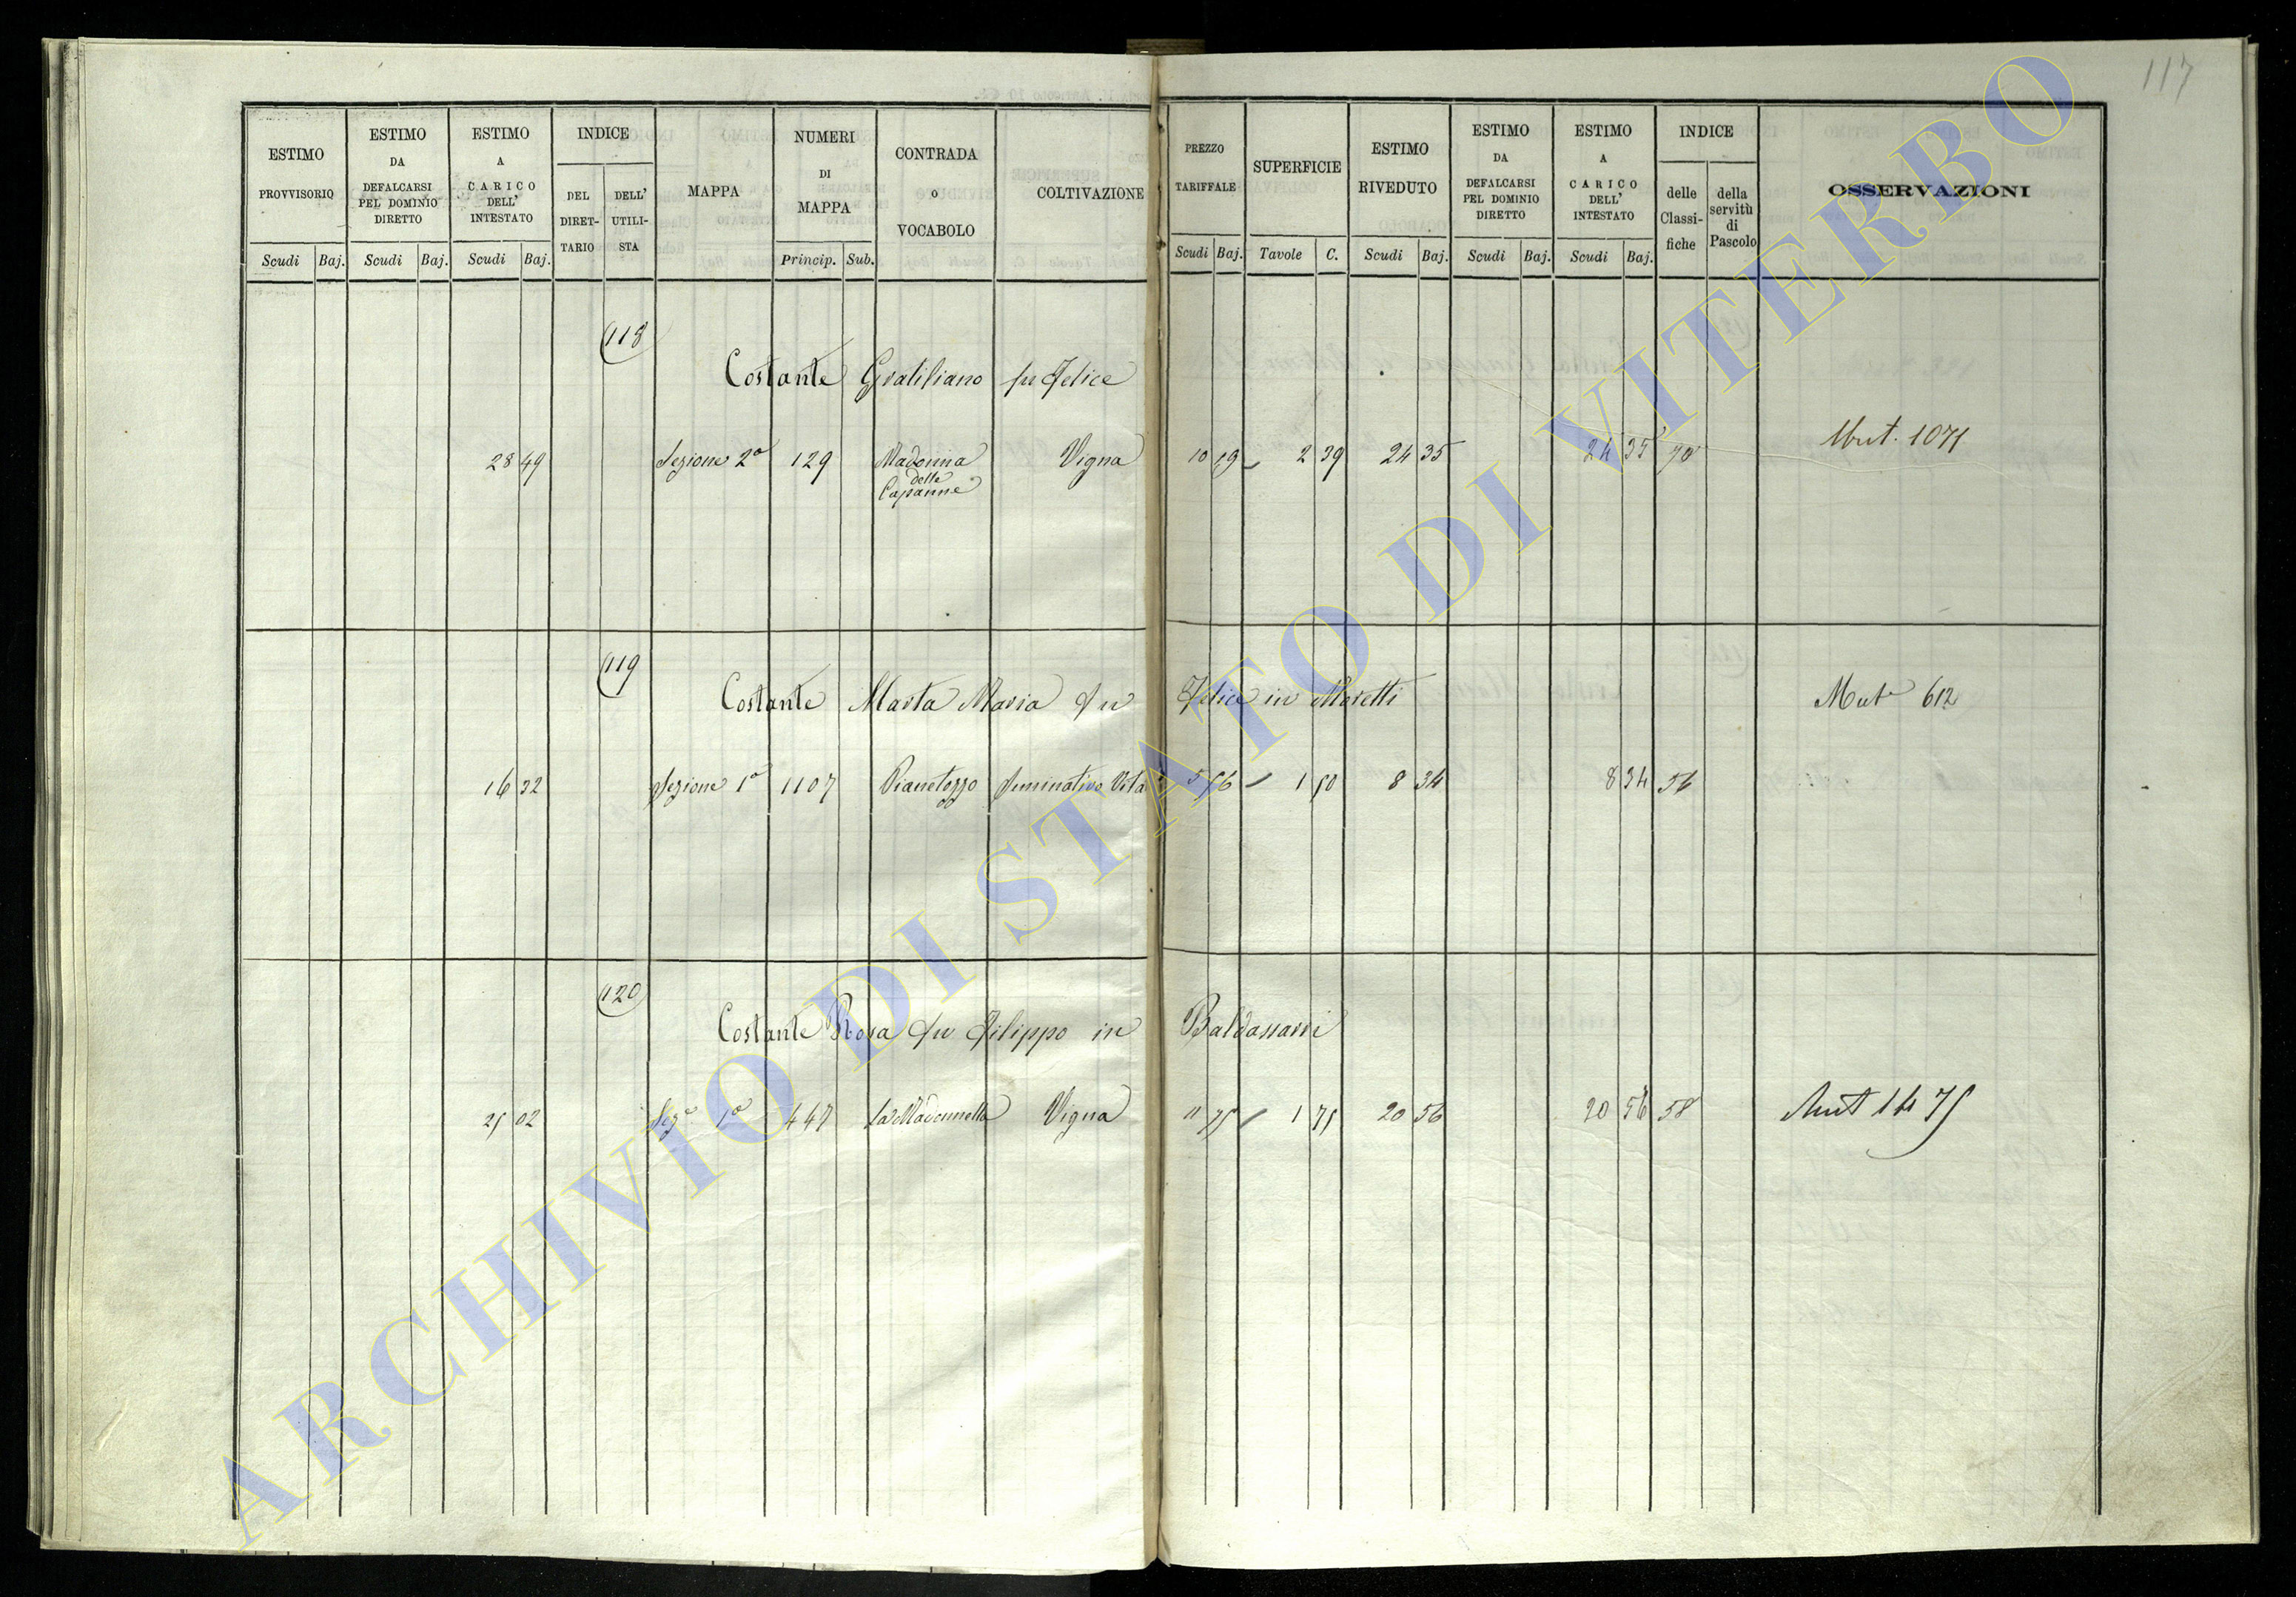 117
ESTIMO PROVVISORIO
ESTIMO DA DEFALCARSI PEL DOMINIO DIRETTO
ESTIMO A CARICO DELL' INTESTATO
INDICE
DEL DIRET-TARIO
DELL' UTILI-STA
MAPPA
NUMERI DI MAPPA
CONTRADA o VOCABOLO
COLTIVAZIONE
PREZZO TARIFFALE
SUPERFICIE
ESTIMO RIVEDUTO
ESTIMO DA DEFALCARSI PEL DOMINIO DIRETTO
ESTIMO A CARICO DELL' INTESTATO
INDICE
delle Classi-fiche
della servitù di Pascolo
OSSERVAZIONI
Scudi Baj. Scudi Baj. Scudi Baj. Princip. Sub. Scudi Baj. Tavole C. Scudi Baj. Scudi Baj. Scudi Baj.
118
Costante Gratiliano fu Felice
28 49 Sezione 2a 129 Madonna delle Capanne Vigna 10 19 2 39 24 35 24 35 70 Mut. 1071
119
Costante Marta Maria fu Felice in Moretti Mut 612
16 32 Sezione 1a 1107 Pianetozzo Seminativo Vitato 5 56 1 50 8 34 8 34 56
120
Costante Rosa fu Filippo in Baldassarri
25 02 Seze 1a 447 La Madonnella Vigna 11 75 1 75 20 56 20 56 58 Mut 1475
ARCHIVIO DI STATO DI VITERBO